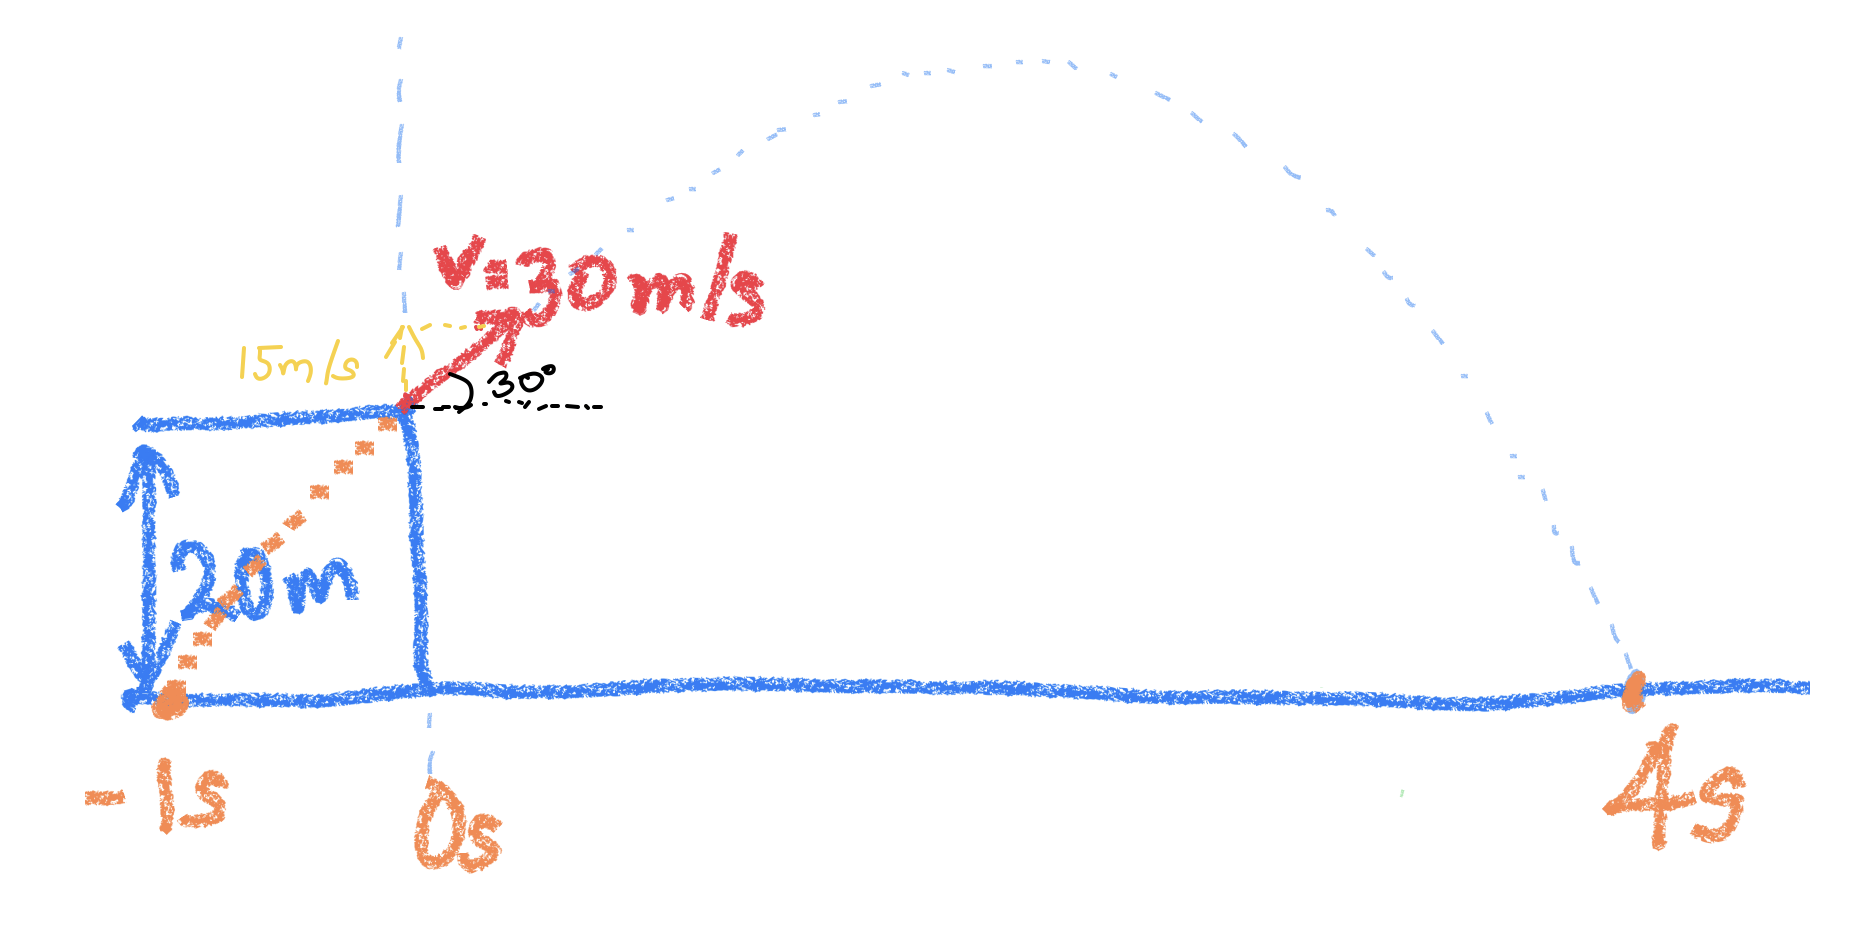 v=30m/s
15m/s
30°
20m
-1s
0s
4s